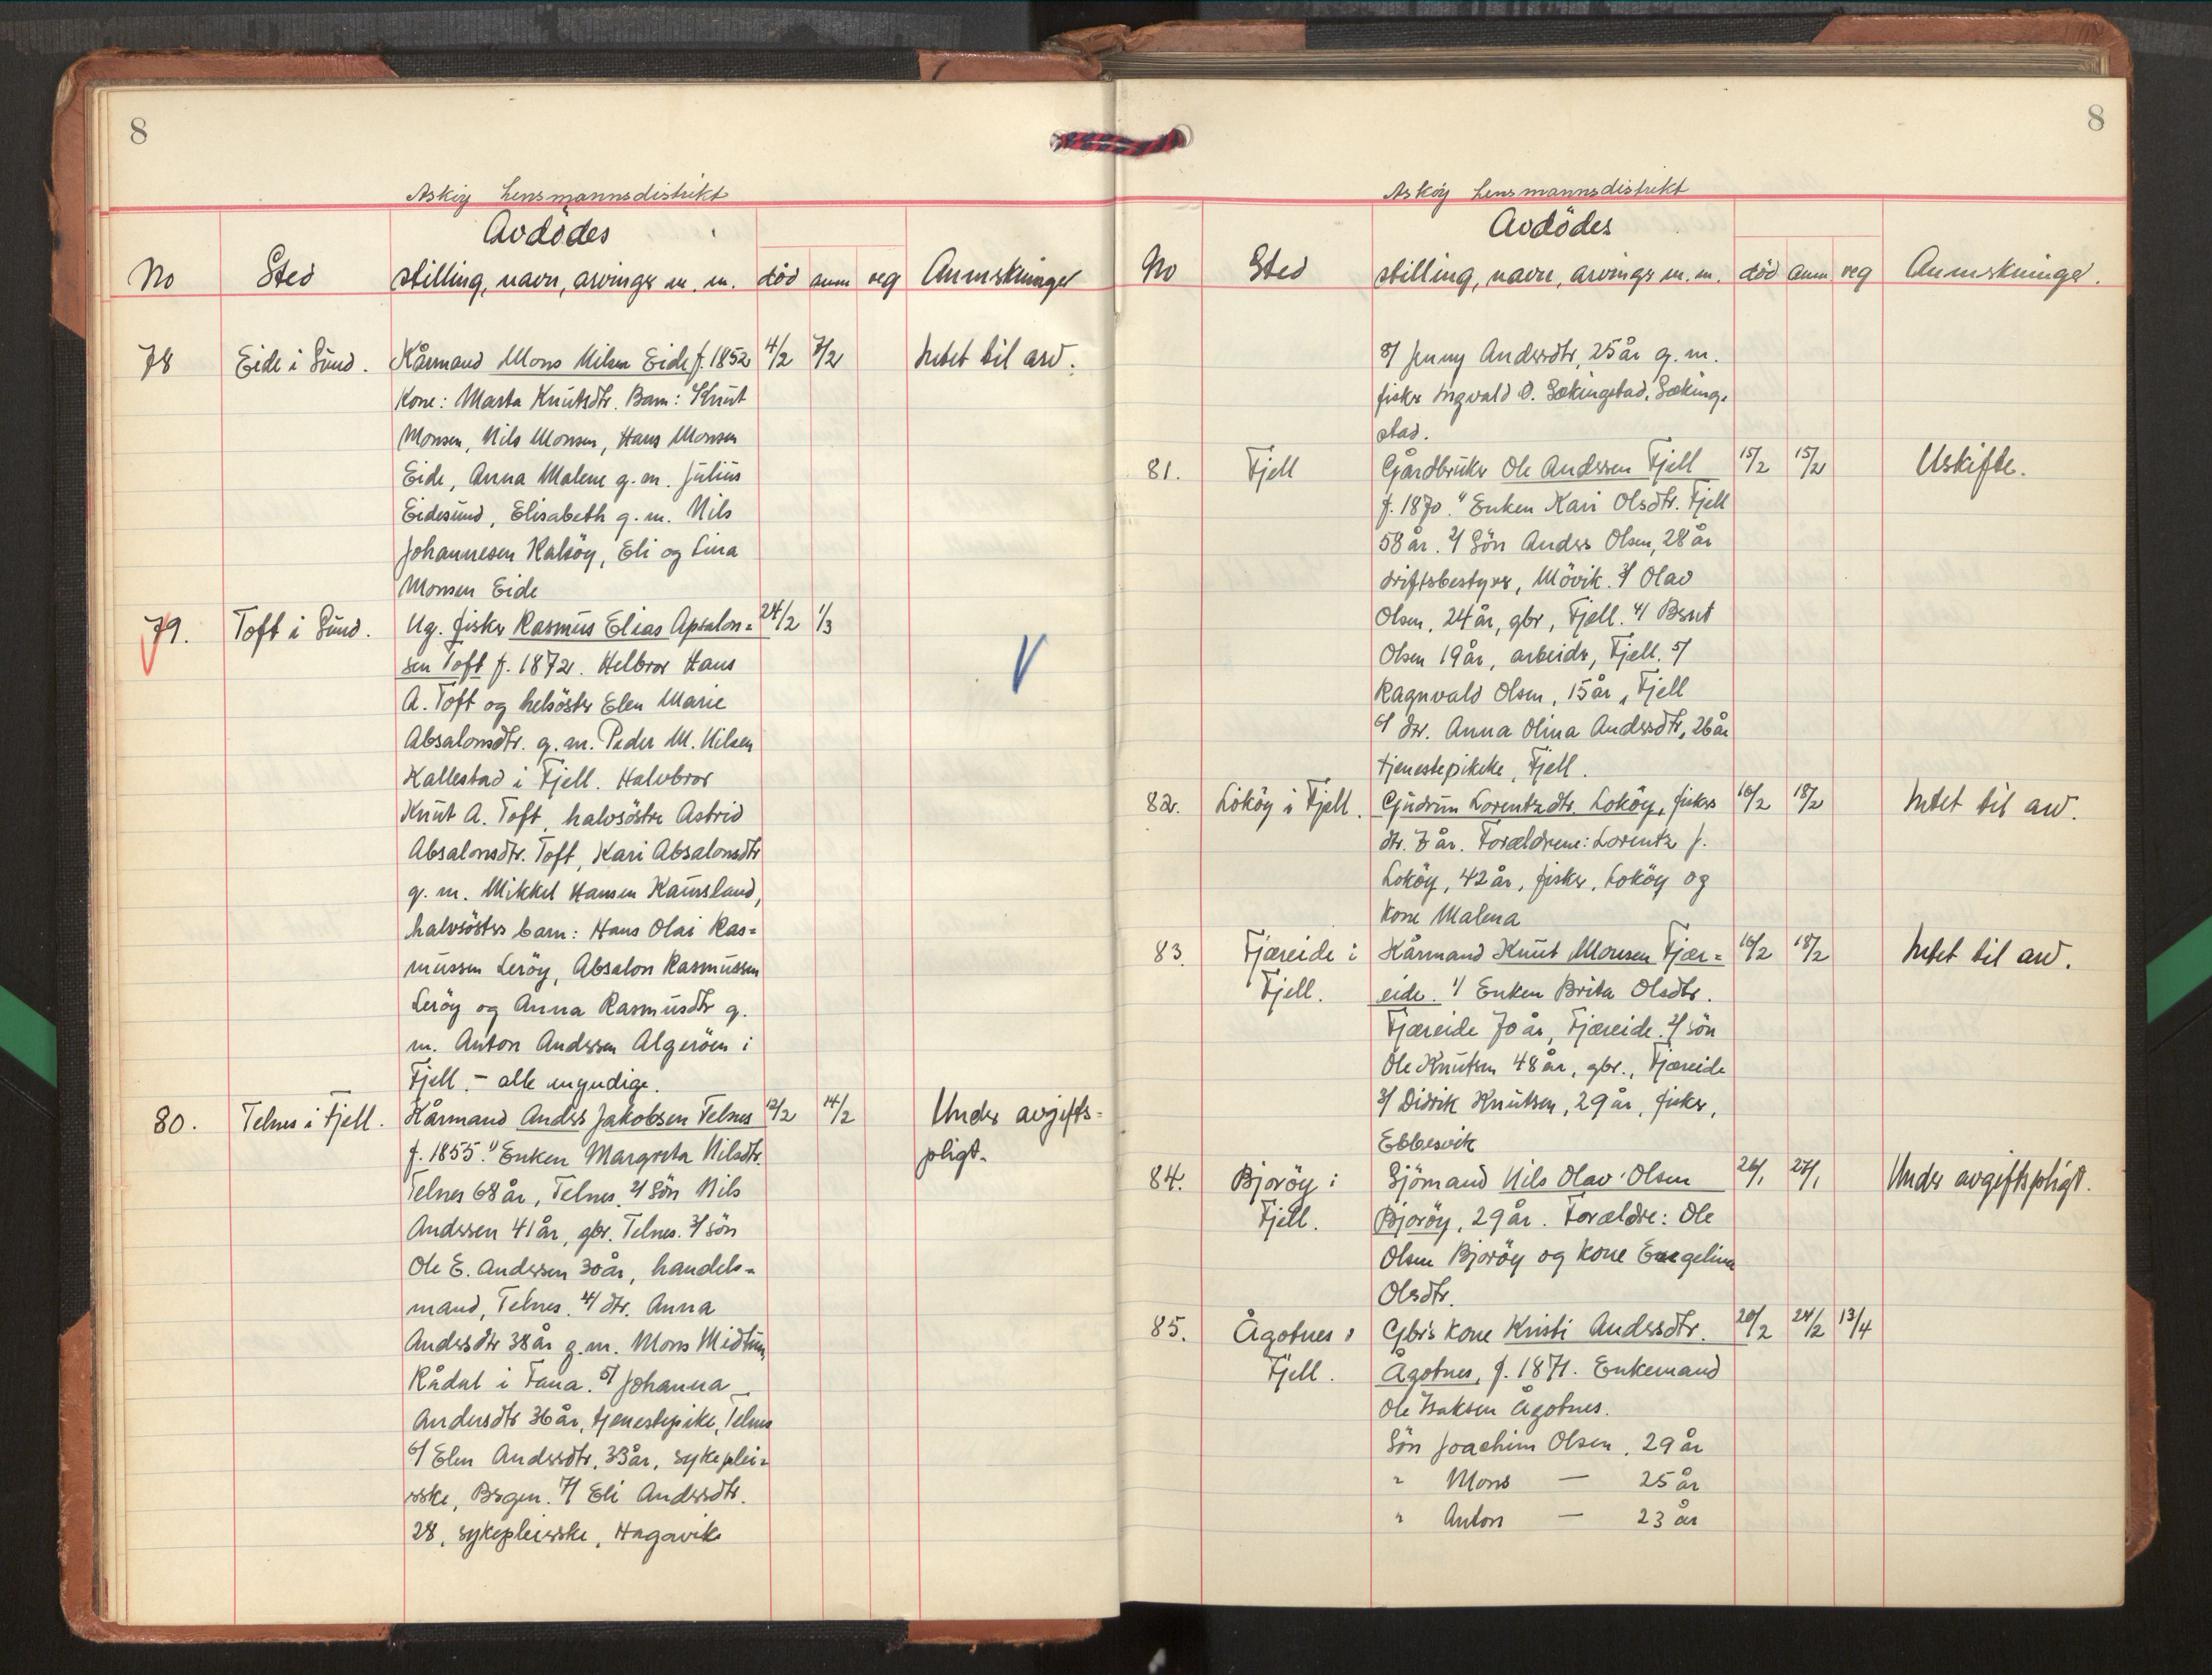 8
Askøy Lensmannsdistrikt
Avdödes
No Sted stilling, navn, arvinger m. m. död anm reg Anmerkninger
78 Eide i Sund. Kårmand Mons Nilsen Eide f. 1852 4/2 7/2 Intet til arv.
Kone: Marta Knutsdtr. Barn: Knut
Monsen, Nils Monsen, Hans Monsen
Eide, Anna Malene g. m. Julius
Eidesund, Elisabeth g. m. Nils
Johannesen Kalsöy, Eli og Lina
Monsen Eide
79. Toft i Sund. Ug. fisker Rasmus Elias Apsalon= 24/2 1/3
sen Toft f. 1872. Helbror Hans V
A. Toft og helsöster Elen Marie
Absalonsdtr. g. m. Peder M. Nilsen
Kallestad i Fjell. Halvbror
Knut A. Toft, halvsöstre Astrid
Absalonsdtr. Toft, Kari Absalonsdtr
g. m. Mikkel Hansen Kausland,
halvsösters barn: Hans Olai Ras=
mussen Leröy, Absalon Rasmussen
Leröy og Anna Rasmusdtr g.
m. Anton Andersen Algeröen i
Fjell. - alle myndige.
80. Telnes i Fjell. Kårmand Anders Jakobsen Telnes 12/2 14/2 Under avgifts=
f. 1855. 1/ Enken Margreta Nilsdtr. pligt.
Telnes 68 år, Telnes. 2/ Sön Nils
Andersen 41 år, gbr. Telnes. 3/ sön
Ole E. Andersen 30 år, handels=
mand, Telnes. 4/ dtr. Anna
Andersdtr 38 år g. m. Mons Midtun,
Rådal i Fana. 5/ Johanna
Andersdtr 36 år, tjenestepike, Telnes
6/ Elen Andersdtr, 33 år, sykeplei=
erske, Bergen. 7/ Eli Andersdtr.
28, sykepleierske, Hagavik
8
Askøy Lensmannsdistrikt
Avdödes
No Sted stilling, navn, arvinger m. m. död anm. reg Anmerkninger.
8/ Jenny Andersdtr, 25 år g. m.
fisker Ingvald O. Sekingstad, Seking=
stad.
81. Fjell Gårdbruker Ole Andersen Fjell 15/2 15/2 Uskifte.
f. 1870. 1/ Enken Kari Olsdtr. Fjell
58 år. 2/ Sön Anders Olsen, 28 år
driftsbestyrer, Mövik. 3/ Olav
Olsen, 24 år, gbr, Fjell. 4/ Bernt
Olsen 19 år, arbeider, Fjell. 5/
Ragnvald Olsen, 15 år, Fjell
6/ dtr. Anna Olina Andersdtr, 26 år
tjenestepike, Fjell.
82. Loköy i Fjell. Gudrun Lorentzdtr. Loköy, fiskers 16/2 18/2 Intet til arv.
dtr. 7 år. Forældrene: Lorentz J.
Loköy, 42 år, fisker, Loköy og
kone Malena
83. Fjæreide i Kårmand Knut Monsen Fjær= 16/2 18/2 Intet til arv.
Fjell. eide. 1/ Enken Brita Olsdtr.
Fjæreide 70 år, Fjæreide. 2/ sön
Ole Knutsen 48 år, gbr., Fjæreide
3/ Didrik Knutsen, 29 år, fisker,
Ebbesvik
84. Bjoröy i Sjömand Nils Olav Olsen 26/1 27/1 Under avgiftspligt.
Fjell. Bjoröy, 29 år. Forældre: Ole
Olsen Bjoröy og kone Engelina
Olsdtr.
85. Ågotnes i Gbr's kone Kristi Andersdtr. 20/2 24/2 13/4
Fjell. Ågotnes, f. 1871. Enkemand
Ole Isaksen Ågotnes.
Sön Joachim Olsen, 29 år
" Mons — 25 år
" Anton — 23 år